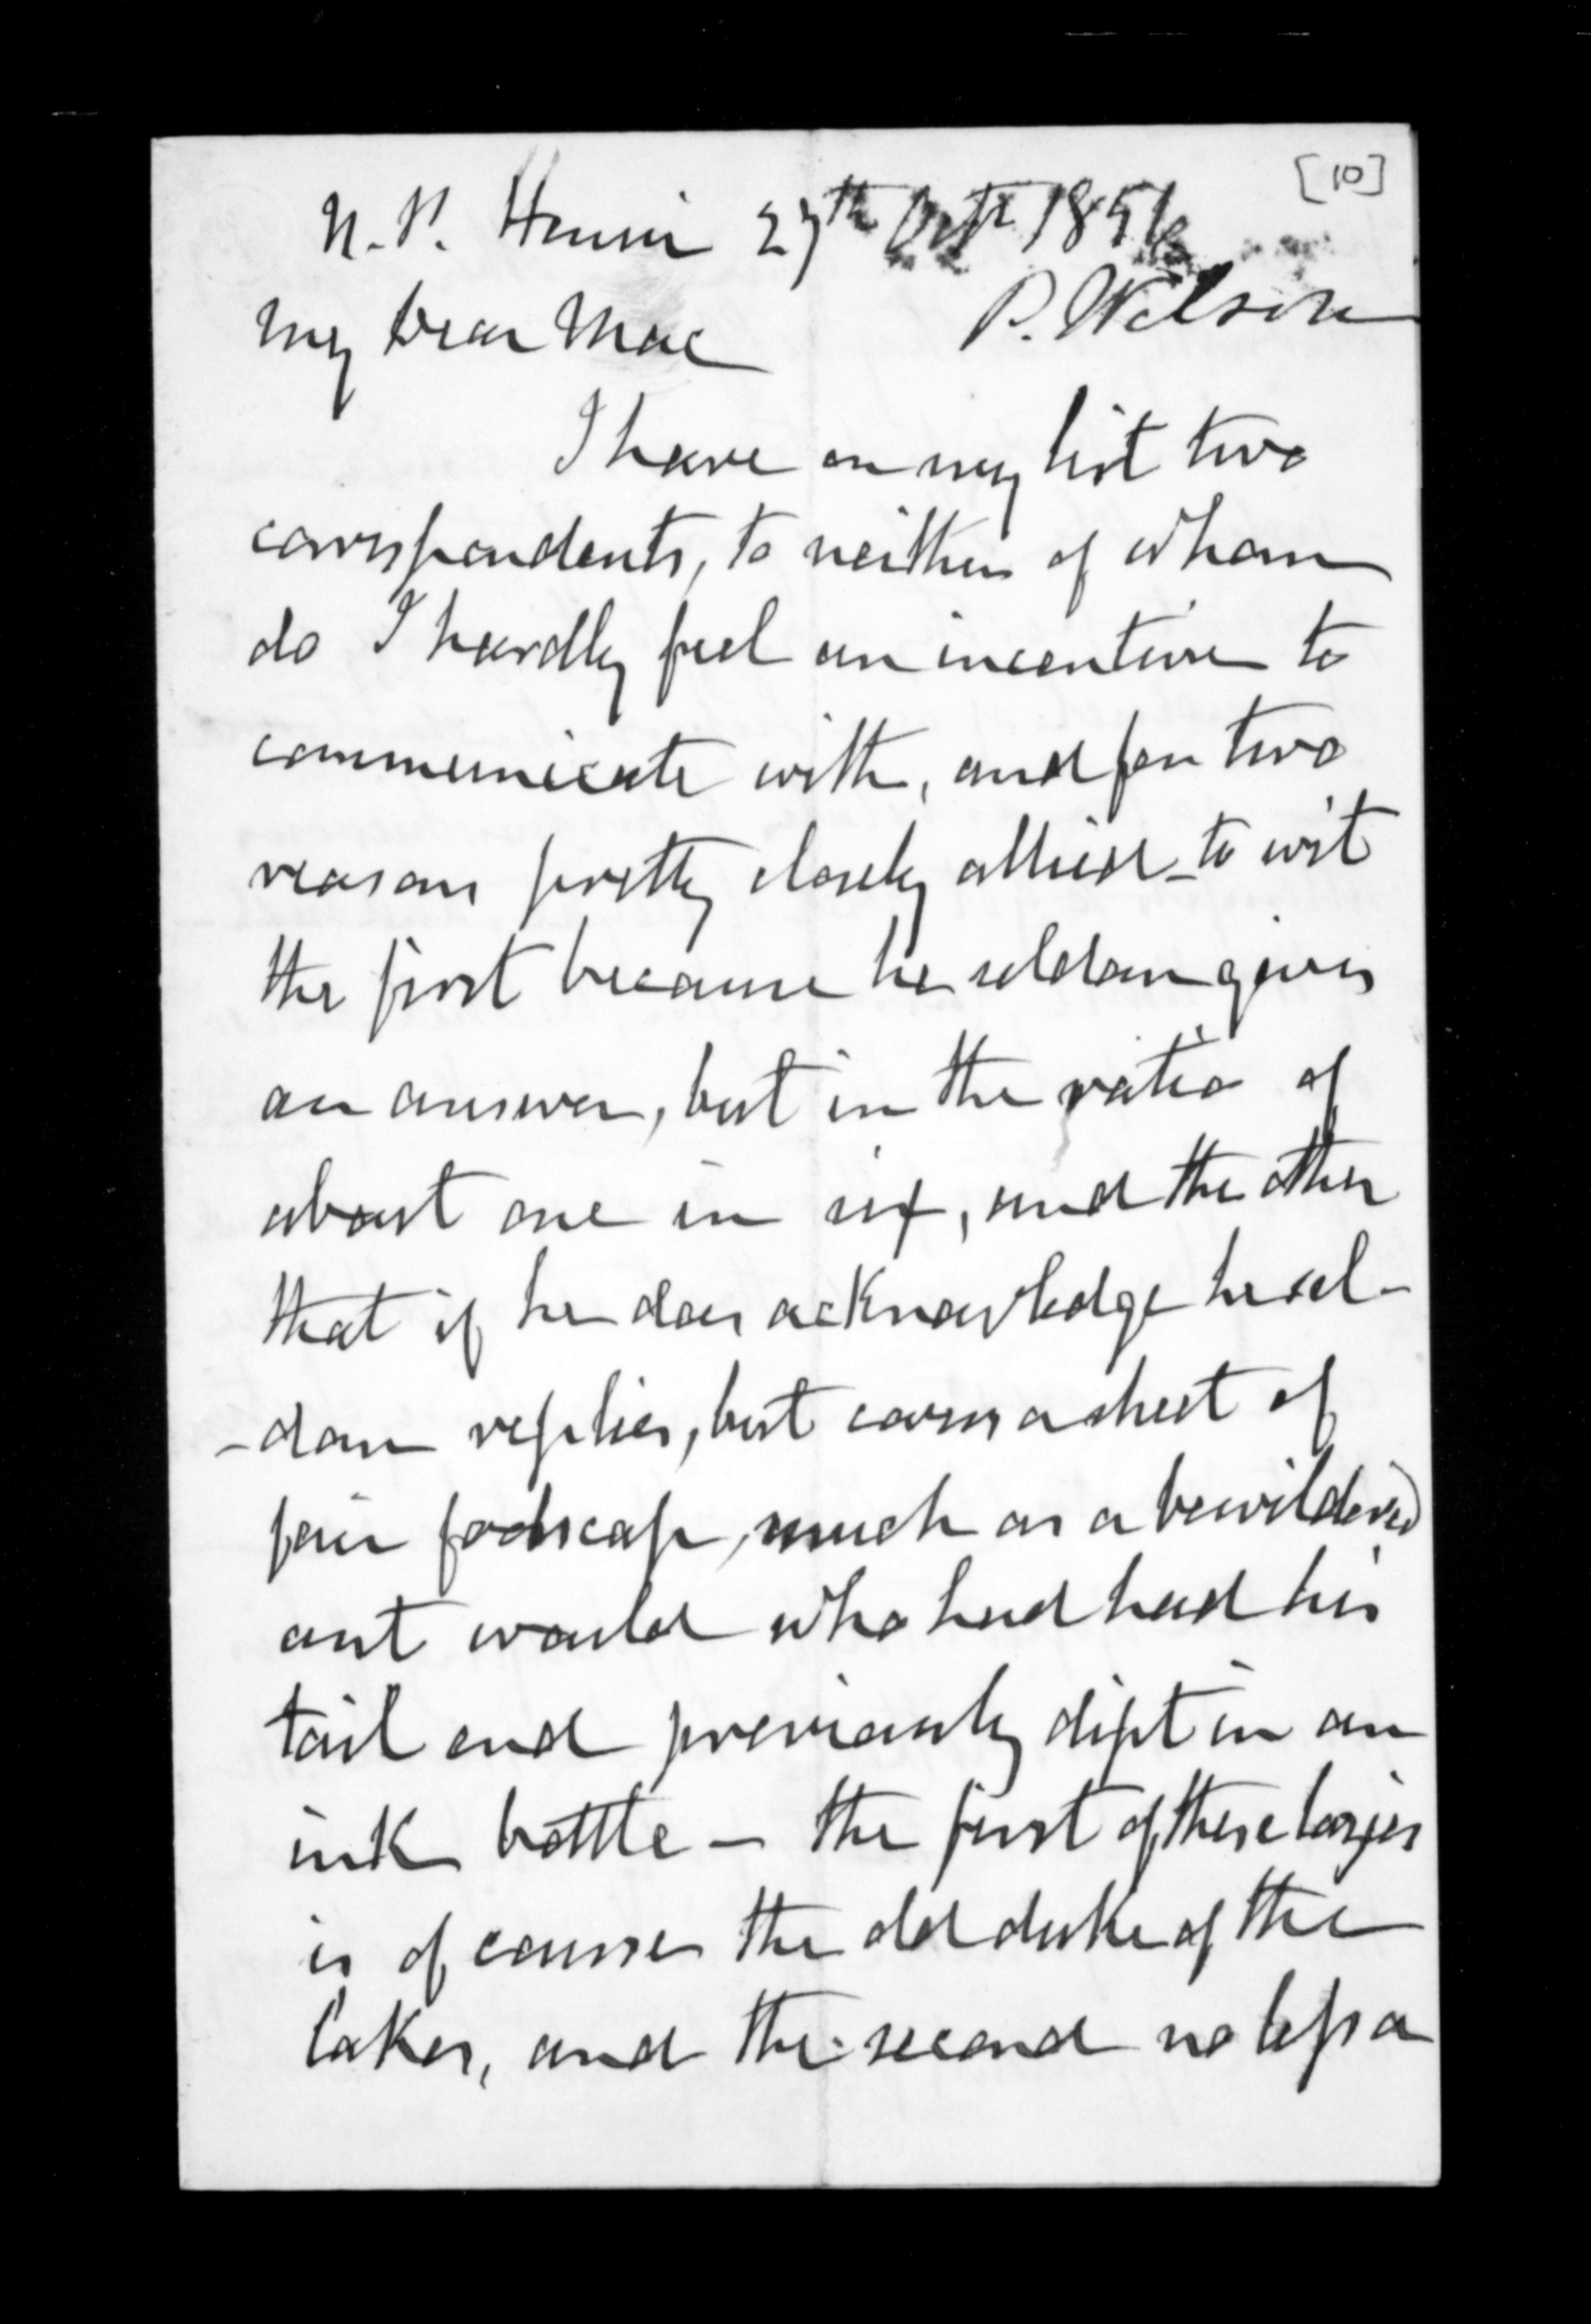 [10]
N.P. 27th Octr 1856
P. Wilson
My dear Mac
I have on my list two
correspondents, to neither of whom
do I hardly feel an incentive to
communicate with, and for two
reasons pretty closely allied - to wit
the first because he seldom gives
an answer, but in the ratio of
about one in six, and the other
that if he does acknowledge he sel-
-dom replies, but covers a sheet of
fair foolscap, much as a bewildered
ant would who had had his
tail end previously dipt in an
ink bottle - the first of these
is of course the old duke of the
lakes, and the second no less a